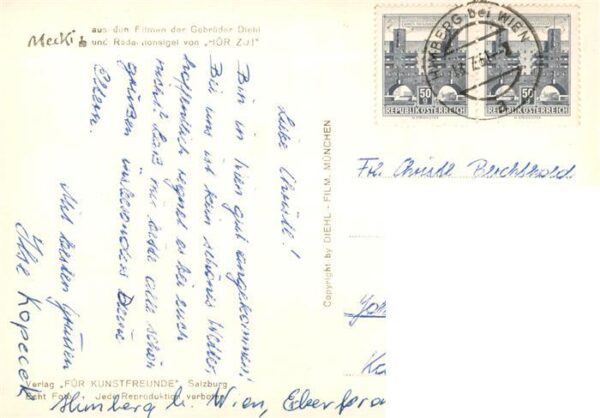 Mecki
aus den Filmen der Gebrüder Diehl
und Redaktionsigel von „HÖR ZU!"
Liebe Christl!
Bin in Wien gut angekommen;
Bei uns ist kein schönes Wetter,
hoffentlich regnet es bei euch
nicht. Laß mir bitte alle schön
grüßen insbesondere Deine
Eltern.
Mit besten Grüßen
Ilse Kopecek
Himberg b. Wien,
Verlag „FÜR KUNSTFREUNDE", Salzburg
Echt Foto Jede Reproduktion verboten
Copyright by DIEHL-FILM, MÜNCHEN
HIMBERG bei WIEN
50 g
REPUBLIK ÖSTERREICH
50 g
REPUBLIK ÖSTERREICH
Frl. Christl